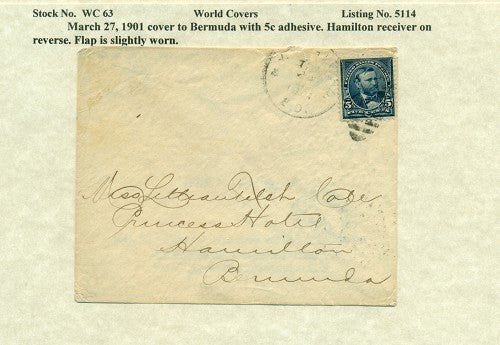 Stock No. WC 63 World Covers Listing No. 5114
March 27, 1901 cover to Bermuda with 5c adhesive. Hamilton receiver on
reverse. Flap is slightly worn.
5 5
Miss
Princess Hotel
Hamilton
Bermuda